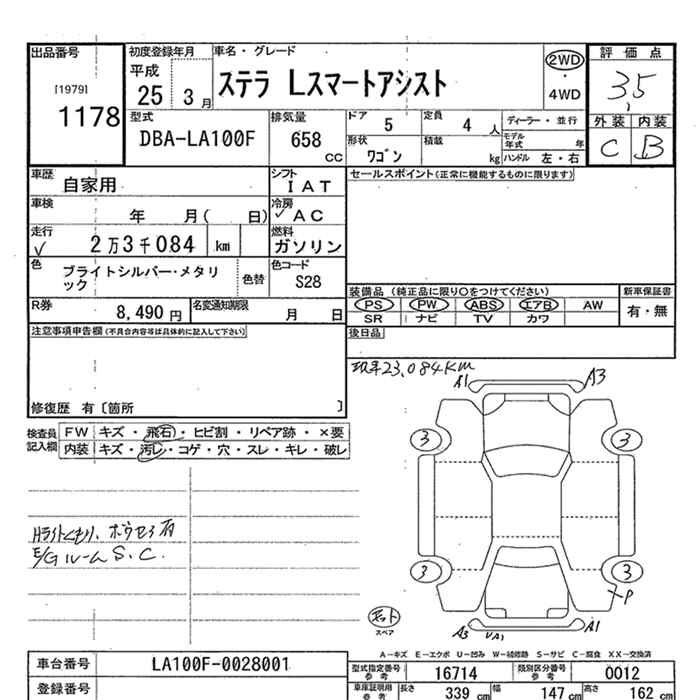 出品番号
[1979]
1178
初度登録年月
平成
25 3月
車名・グレード
ステラ Lスマートアシスト
2WD
・
4WD
評価点
3.5
外装 内装
C B
型式
DBA-LA100F
排気量
658
CC
ドア 5
定員 4 人
ディーラー・並行
モデル年式 年
形状 ワゴン
積載 kg
ハンドル 左・右
車歴 自家用
シフト IAT
セールスポイント(正常に機能するものに限ります)
車検 年 月( 日)
冷房 ✓AC
走行 ✓ 2万3千084 km
燃料 ガソリン
色 ブライトシルバー・メタリ
ック
色替
色コード S28
装備品 (純正品に限り○をつけてください)
新車保証書
PS PW ABS エアB AW
有・無
SR ナビ TV カワ
R券 8,490 円
名変通知期限 月 日
後日品
注意事項申告欄(不具合内容等は具体的に記入して下さい)
修復歴 有〔箇所 〕
23,084KM
A1 A3
検査員
記入欄
FW キズ・飛石・ヒビ割・リペア跡・×要
内装 キズ・汚レ・コゲ・穴・スレ・キレ・破レ
3 3
Hライトくもり、ボウセイ有
E/Gルーム S.C.
3 3
P
スペア
A3 VA1 A1
A-キズ E-エクボ U-凹み W-補修跡 S-サビ C-腐食 XX-交換済
車台番号 LA100F-0028001
型式指定番号
参考
16714
類別区分番号
参考
0012
登録番号
車庫証明用
参考
長さ 339 cm
幅 147 cm
高さ 162 cm